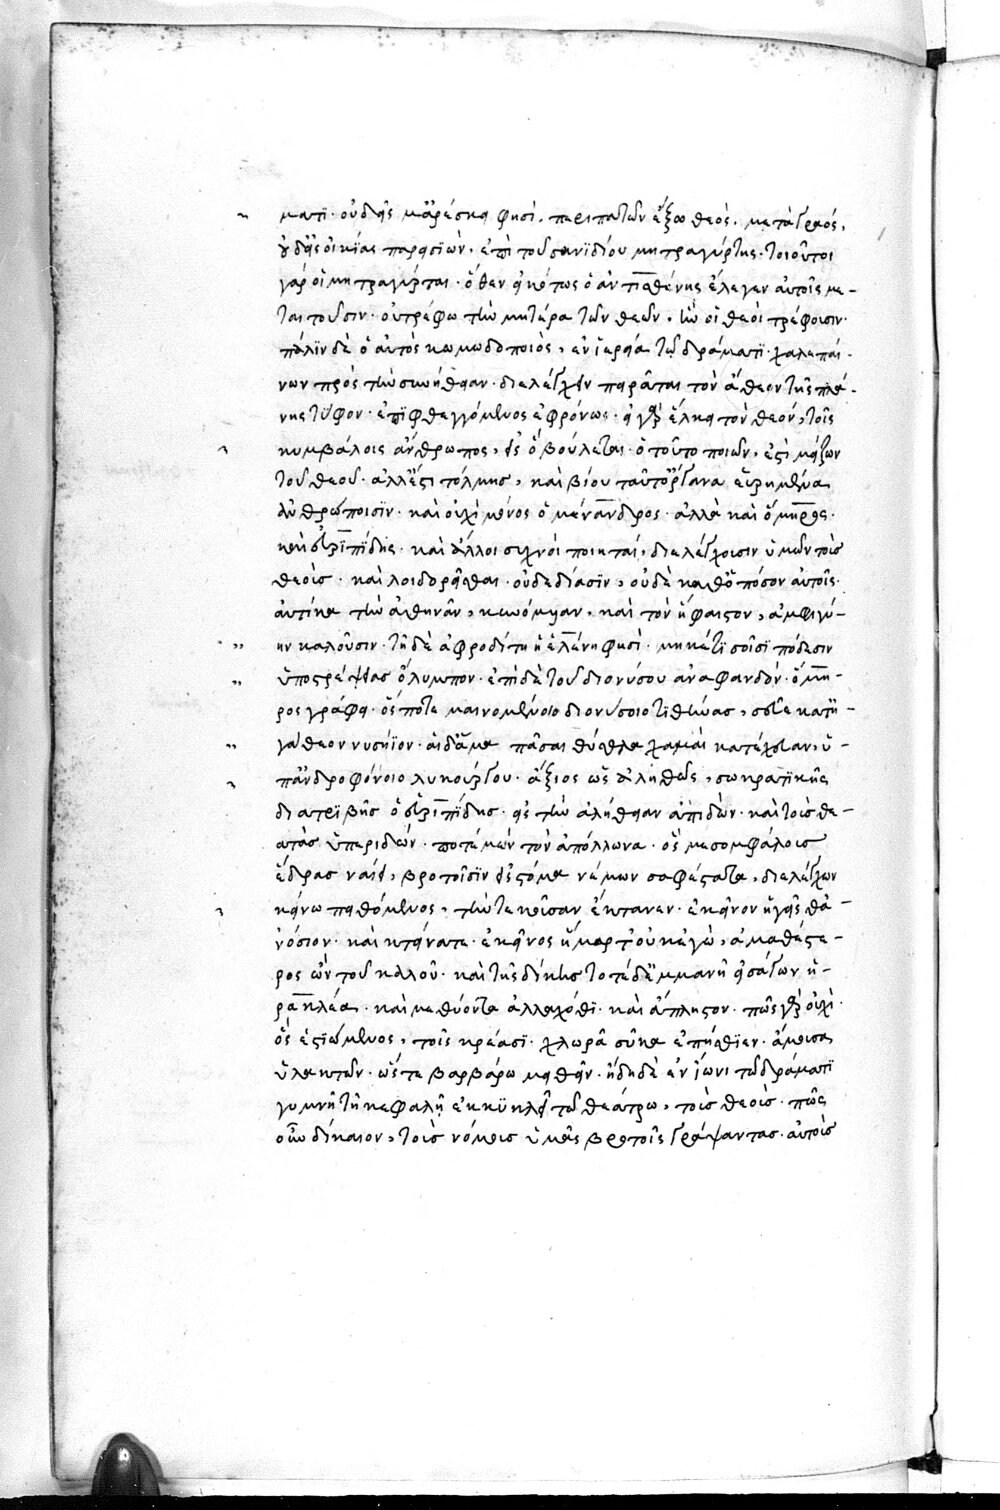 ματϊ· οὐδεὶς μ᾽ἀρέσκει φησὶ. περιπατῶν ἔξω θεὸς. μετὰ γραός,
οὐδ᾽ εἰς οἰκίας παρεισϊὼν. ἐπὶ τοῦ σανϊδίου μητραγύρτης. τοιοῦτοι
γὰρ οἱ μητραγύρται. ὅθεν εἰκότως ὁ ἀντισθένης ἔλεγεν αὐτοῖς με-
ταιτοῦσιν. οὐ τρέφω τὴν μητέρα τῶν θεῶν, ἣν οἱ θεοὶ τρέφουσιν.
πάλϊν δὲ ὁ αὐτὸς κωμωδοποιὸς, ἐν ἱερεία τῷ δράματϊ. χαλεπαί-
νων πρὸς τὴν συνήθειαν. διελέγχειν πειρᾶται τὸν ἄθεον τῆς πλά-
νης τύφον. ἐπϊφθεγγόμενος ἐμφρόνως. εἰ γὰρ ἕλκει τὸν θεὸν, τοῖς
κυμβάλοις ἄνθρωπος, εἰς ὃ βούλεται. ὁ τοῦτο ποιῶν, ἐστὶ μείζων
τοῦ θεοῦ. ἀλλ᾽ ἔστι τόλμης, καὶ βίου ταῦτ᾽ ὄργανα εὑρημένα
ἀνθρώποισϊν. καὶ οὐχὶ μόνος ὁ μένανδρος. ἀλλὰ καὶ ὅμηρος.
καὶ εὐριπίδης. καὶ ἄλλοι συχνοὶ ποιηταὶ, διελέγχουσιν ὑμῶν τοὺς
θεοὺς. καὶ λοιδορεῖσθαι. οὐ δεδίασϊν, οὐδὲ καθ᾽ ὁπόσον αὐτοῖς.
αὐτίκα τὴν ἀθηνᾶν, κυνόμυιαν, καὶ τὸν ἥφαιστον, ἀμφιγύ-
ην καλοῦσιν. τῆ δὲ ἀφροδίτη ἡ ἑλένη φησὶ. μηκέτϊ σοῖσϊ πόδεσιν
ὑποστρέψειας ὄλυμπον. ἐπὶ δὲ τοῦ διονύσου ἀναφανδὸν. ὅμη-
ρος γράφει. ὅς ποτε μαινομένοιο διονύσοιο τϊθήνας, σεῦε κατη-
γάθεον νυσήϊον. αἱ δ᾽ ἅμα πᾶσαι θύσθλα χαμαὶ κατέχευαν, ὑ-
π᾽ ἀνδροφόνοιο λυκούργου. ἄξιος ὡς ἀληθῶς, σωκρατϊκῆς
διατρϊβῆς ὁ εὐριπίδης. εἰς τὴν ἀλήθειαν ἀπιδὼν. καὶ τοὺς θε-
ατὰς ὑπεριδὼν. ποτὲ μὲν τὸν ἀπόλλωνα. ὃς μεσομφάλους
ἕδρας ναίει, βροτοῖσϊν στόμα νέμων σαφέστατα, διελέγχων
κείνω πειθόμενος, τὴν τεκοῦσαν ἔκτανον. ἐκεῖνον ἡγεῖσθ᾽ ἀ-
νόσιον. καὶ κτείνατε. ἐκεῖνος ἥμαρτ᾽ οὐκ ἐγὼ, ἀμαθέστε-
ρος ὢν τοῦ καλοῦ. καὶ τῆς δίκης τοτὲ δ᾽ ἐμμανῆ εἰσάγων ἡ-
ρακλέα. καὶ μεθύοντα ἀλλαχόθϊ. καὶ ἄπληστον. πῶς γὰρ οὐχὶ.
ὃς ἑστϊώμενος, τοῖς κρέασϊ. χλωρὰ σῦκα ἐπήσθιεν. ἄμουσα
ὑλακτῶν. ὥστε βαρβάρω μαθεῖν. ἤδη δὲ ἐν ἴωνι τῶ δράματϊ
γυμνῆ τῆ κεφαλῆ ἐκκϋκλεῖ τῶ θεάτρω, τοὺς θεοὺς. πῶς
οὖν δίκαιον, τοὺς νόμους ὑμᾶς βροτοῖς γράψαντας. αὐτοὺς